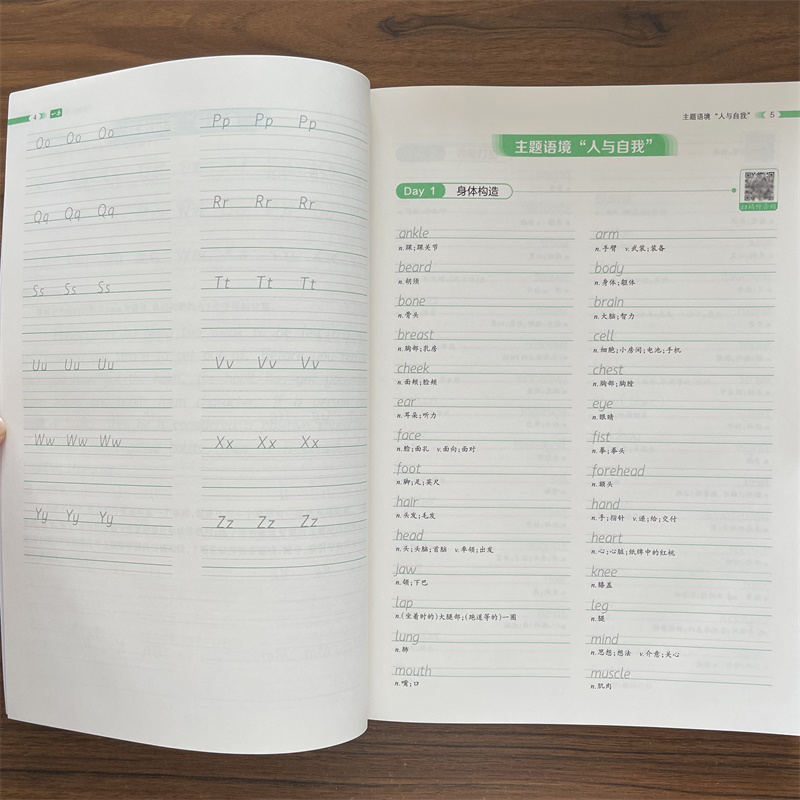 4 一本
Oo Oo Oo
Pp Pp Pp
Qq Qq Qq
Rr Rr Rr
Ss Ss Ss
Tt Tt Tt
Uu Uu Uu
Vv Vv Vv
Ww Ww Ww
Xx Xx Xx
Yy Yy Yy
Zz Zz Zz
主题语境“人与自我” 5
主题语境“人与自我”
Day 1 身体构造
扫码听音频
ankle
n.踝;踝关节
beard
n.胡须
bone
n.骨头
breast
n.胸部;乳房
cheek
n.面颊;脸颊
ear
n.耳朵;听力
face
n.脸;面孔 v.面向;面对
foot
n.脚;足;英尺
hair
n.头发;毛发
head
n.头;头脑;首脑 v.率领;出发
jaw
n.颌;下巴
lap
n.(坐着时的)大腿部;(跑道等的)一圈
lung
n.肺
mouth
n.嘴;口
arm
n.手臂 v.武装;装备
body
n.身体;躯体
brain
n.大脑;智力
cell
n.细胞;小房间;电池;手机
chest
n.胸部;胸膛
eye
n.眼睛
fist
n.拳;拳头
forehead
n.额头
hand
n.手;指针 v.递;给;交付
heart
n.心;心脏;纸牌中的红桃
knee
n.膝盖
leg
n.腿
mind
n.思想;想法 v.介意;关心
muscle
n.肌肉